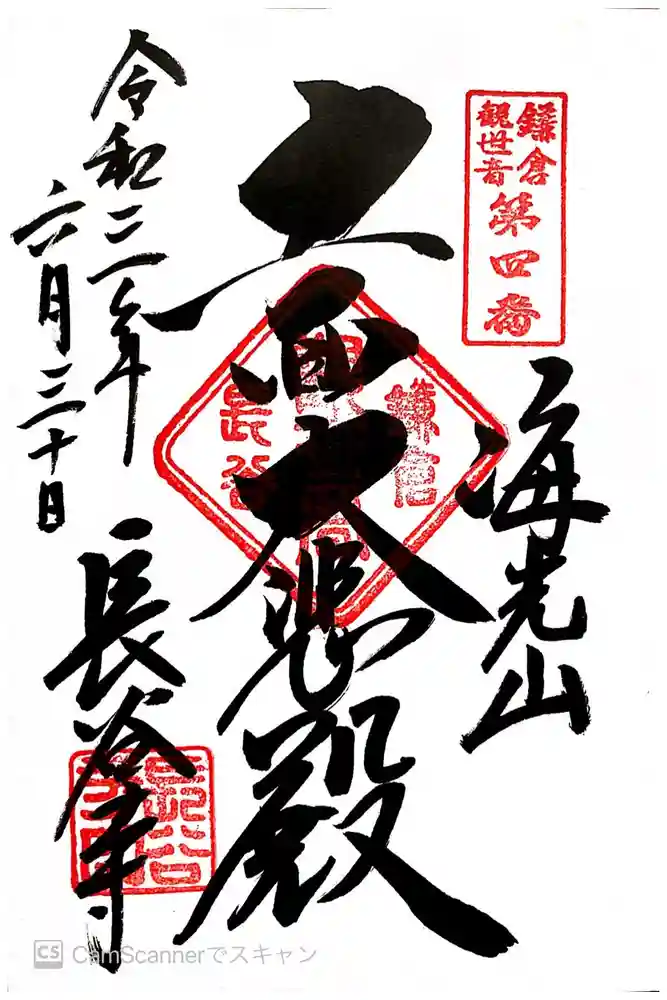 鎌倉
観世音
第四番
海光山
十一面大悲殿
鎌倉
長谷
令和三年
六月三十日
長谷寺
CS CamScannerでスキャン